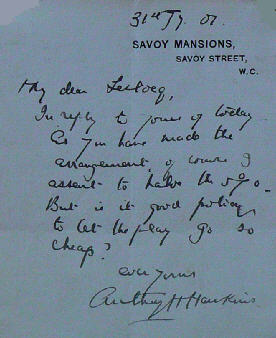 31st Jy. 01.
SAVOY MANSIONS,
SAVOY STREET,
W.C.
My dear Lestocq,
In reply to yours of today
As you have made the
arrangement, of course I
assent to halve the 5%.
But is it good policy
to let the play go so
cheap?
ever yours
Anthony H Hawkins